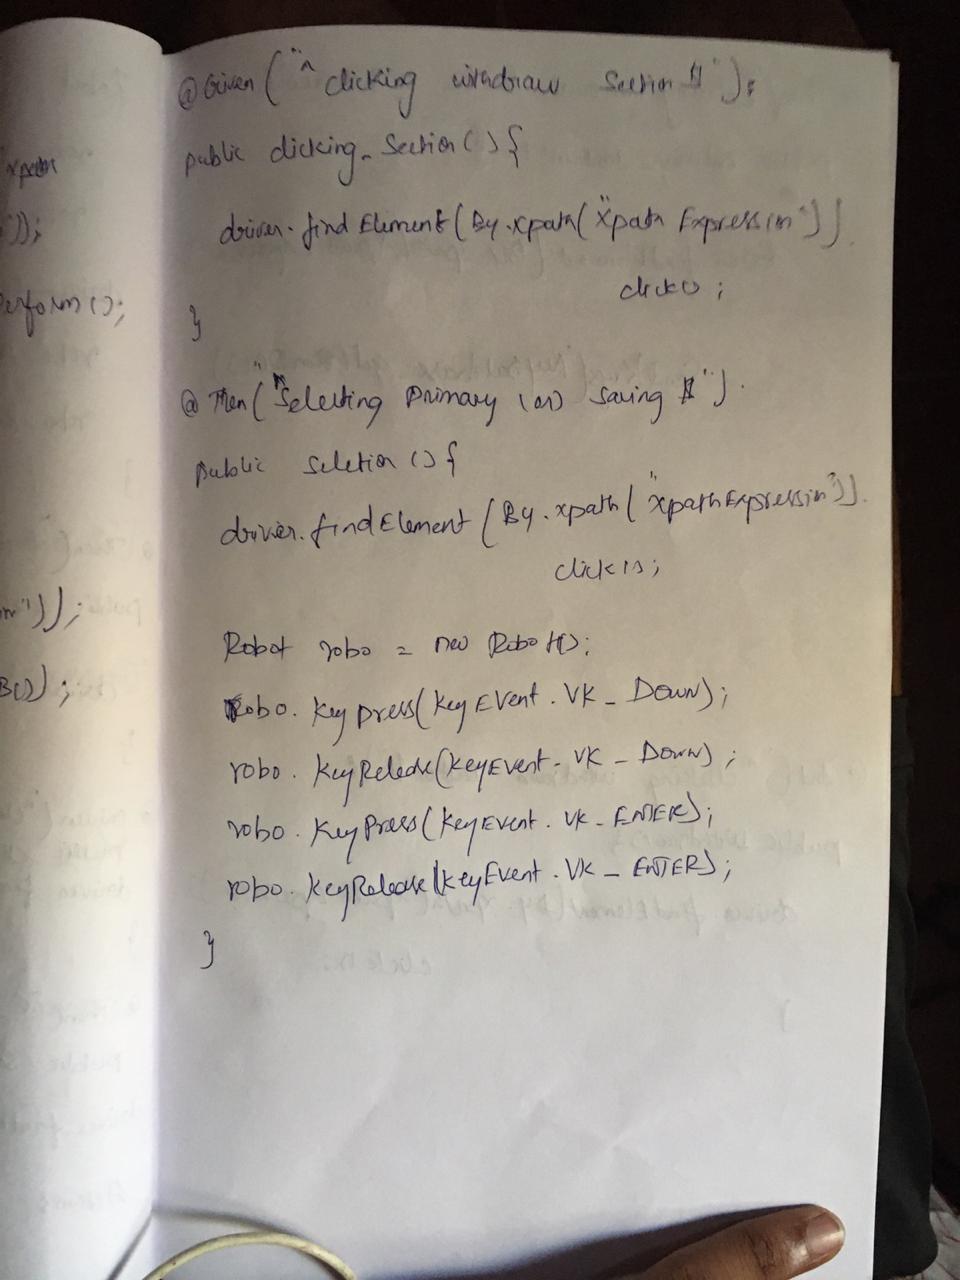 xpath
"));
erform();
m"));
B());
@Given ("^ clicking withdraw Section $");
public clicking_Section () {
driver.findElement(By.xpath("xpath Expression")).
click();
}
@Then ("^Selecting Primary (or) Saving $").
public Seletion () {
driver.findElement (By.xpath("xpathExpression")).
click();
Robot robo = new Robot();
Robo. KeyPress(KeyEvent. VK_DOWN);
robo. KeyRelease(KeyEvent. VK_DOWN);
robo. KeyPress(KeyEvent. VK_ENTER);
robo. KeyRelease(KeyEvent. VK_ENTER);
}